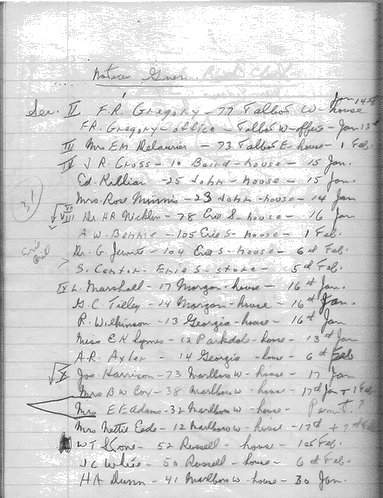 Notice Given
Sec. II F.R. Gregory - 77 Talbot W - house Jan 14th
F.R. Gregory - office - Talbot W - office - Jan 13th
III Mrs E M Delaurier - 73 Talbot E - house - 1 Feb
IV J R Cross - 10 Baird - house - 15 Jan
Ed. Killiar - 25 John - house - 15 Jan.
Mrs. Rose Minnis - 23 John - house - 14 Jan
VII Dr HA - 78 Erie S - house - 16 Jan
A W - 105 Erie S - house - 1 Feb
Dr. G Jewett - 104 Erie S - house - 6th Feb.
S. - Erie S - store - 5th Feb.
IX L. Marshall - 17 Morgan - house - 16th Jan.
G. C. Tilley - 14 Morgan - house - 16th Jan.
R. Wilkinson - 13 Georgia - house - 16th Jan
Miss C K - 12 Parkdale - home - 13th Jan
A.R. Axtor - 14 Georgia - home - 6th Feb
X Jos Harrison - 73 Marlborow - house - 17 Jan
Mrs B W Cox - 38 Marlborow - house - 17th Jan + 1 Feb
Mrs E E Adams - 32 Marlborow - house - Permit ?
Mrs Nettie Eade - 12 Marlborow - house - 17th + 7th
W T - 52 Russell - house - 10th Feb
J C White - 50 Russell - house - 6th Feb.
H A Dunn - 41 Marlborow - house - 30 Jan.